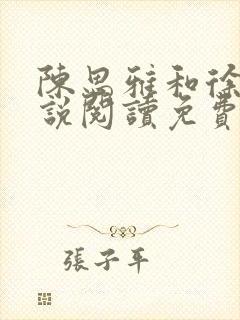 陳思雅和徐
說閱讀免費
張子平